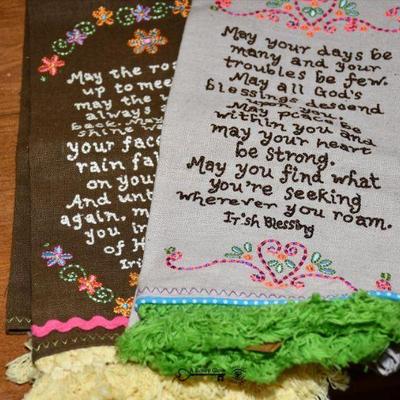 May the
up to
may the
always
back May
shine
your face
rain
on your
And
again,
you in
of

May your days be
many and your
troubles be few.
May all God's
blessings descend
upon you.
May peace be
within you and
may your heart
be strong.
May you find what
you're seeking
wherever you roam.
Irish Blessing